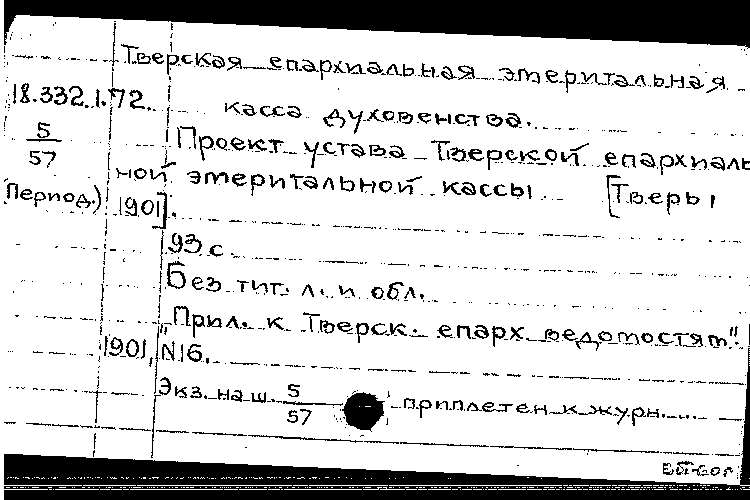 Тверская епархиальная эмеритальная
18.332.1.72.
касса духовенства.
5
57
Проект устава Тверской епархиаль
ной эмеритальной кассы [Тверь,
(Период.)
1901].
93 с
Без тит. л. и обл.
"Прил. к Тверск. епарх. ведомостям".
1901, N16.
Экз. наш. 5
57
приплетен к журн....